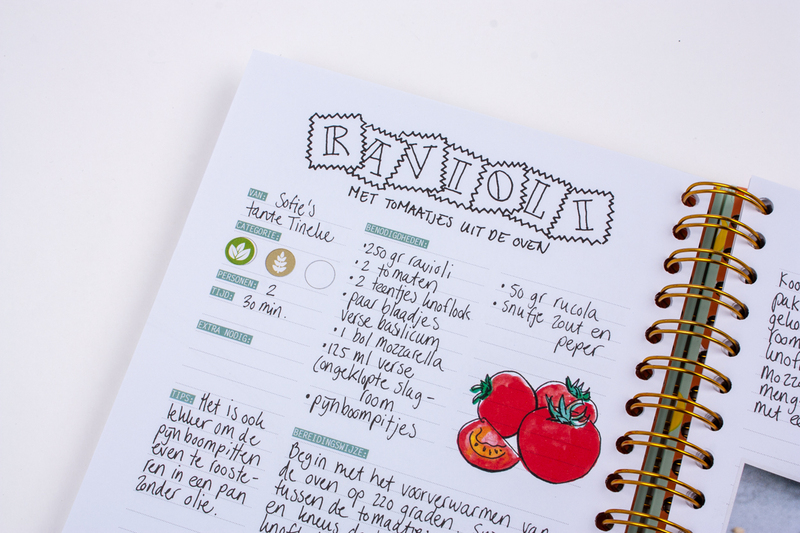 RAVIOLI
MET TOMAATJES UIT DE OVEN
VAN: Sofie's
tante Tineke
CATEGORIE:
PERSONEN: 2
TIJD: 30 min.
EXTRA NODIG:
TIPS: Het is ook
lekker om de
pijnboompitten
even te rooste-
ren in een pan
zonder olie.
BENODIGDHEDEN:
• 250 gr ravioli
• 2 tomaten
• 2 teentjes knoflook
• paar blaadjes
verse basilicum
• 1 bol mozzarella
• 125 ml verse
(ongeklopte slag-
room
• pijnboompitjes
• 50 gr rucola
• snufje zout en
peper
BEREIDINGSWIJZE:
Begin met het voorverwarmen van
de oven op 220 graden.
tussen de tomaatje
en kneus de
knofl
Koo
pak
geko
room
knofl
mozza
meng
met ee